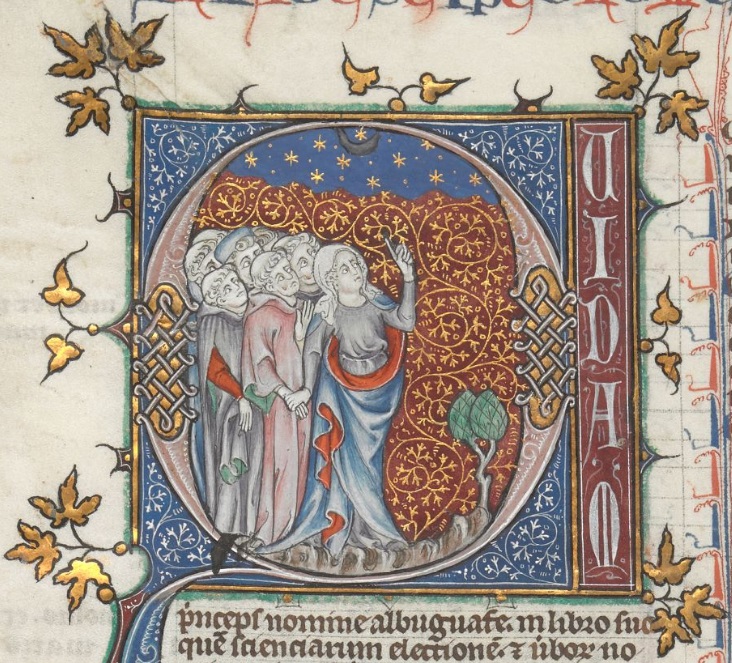 QUIDAM
pͥnceps nomine albuguafe. in libro suo
quē scienciarum electionē. ⁊ ūboꝝ no